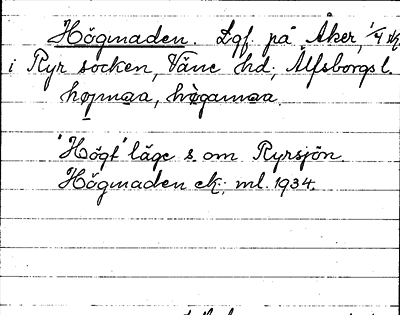 Högmaden. Lgf. på Åker, 1/4 sk.
i Ryr socken, Väne hd; Älfsborgs l.
högmaa, högamaa.
'Högt' läge s. om Ryrsjön.
Högmaden ek; ml. 1934.